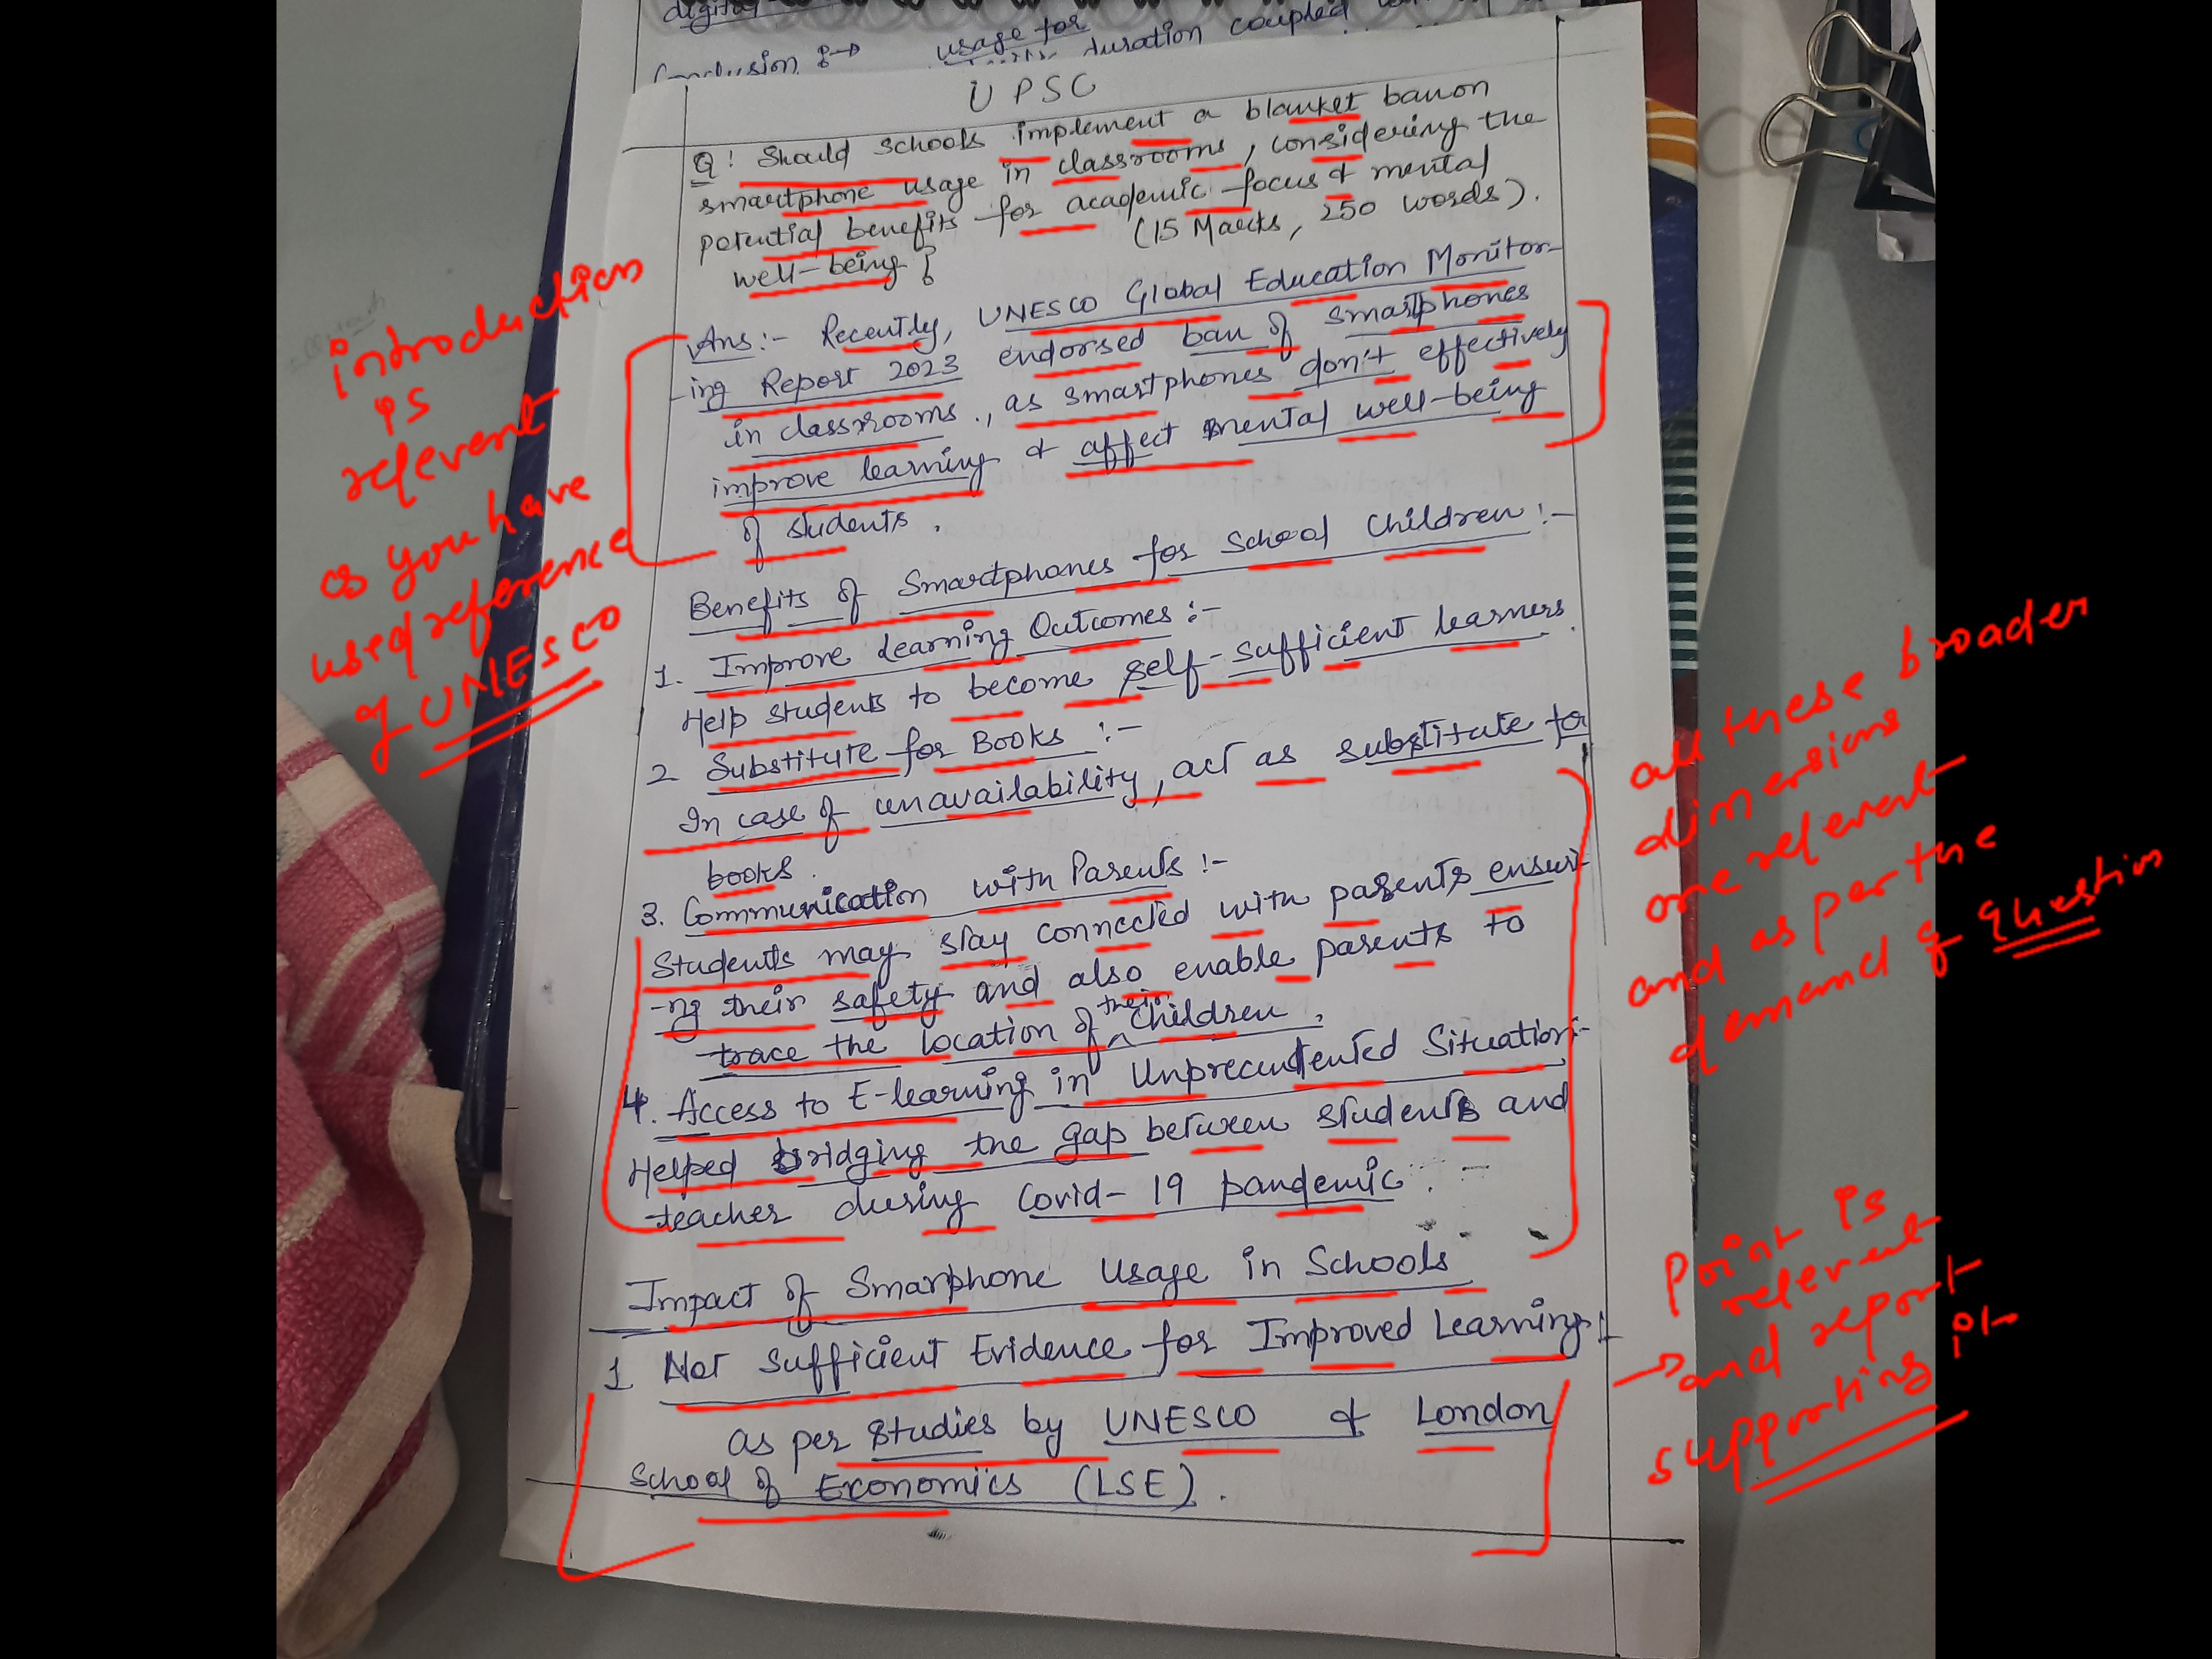 digital
Conclusion :→ usage for
duration coupled
UPSC
Q! Should schools implement a blanket ban on
smartphone usage in classrooms, considering the
potential benefits for academic focus & mental
well-being? (15 Marks, 250 words).
Ans:- Recently, UNESCO Global Education Monitor-
-ing Report 2023 endorsed ban of smartphones
in classrooms., as smartphones don't effectively
improve learning & affect mental well-being
of students.
Benefits of Smartphones for School Children:-
1. Improve Learning Outcomes:-
Help students to become self-sufficient learners.
2 Substitute for Books:-
In case of unavailability, act as substitute for
books.
3. Communication with Parents:-
Students may stay connected with parents ensuri-
-ng their safety and also enable parents to
trace the location of their children.
4. Access to E-learning in Unprecendented Situation:-
Helped bridging the gap between students and
teacher during Covid-19 pandemic.
Impact of Smarphone Usage in Schools
1 Not Sufficient Evidence for Improved Learning:-
as per studies by UNESCO & London
School of Economics (LSE).
introduction
is
relevent
as you have
used reference
of UNESCO
all these broader
dimensions
are relevent
and as per the
demand of question
Point is
relevent
→ and report
supporting it